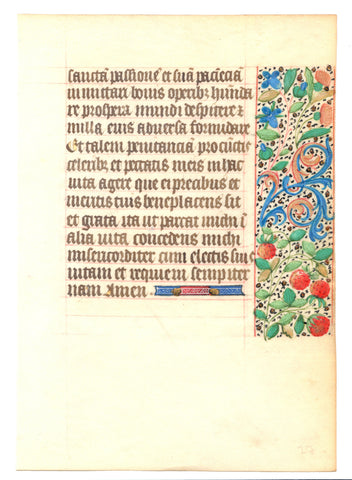 sanctā passionē et suā paciēciā
imitari bonis operibꝫ
re prospera mundi despicere ⁊
nulla eius aduersa formidare
Et talem penitanciā pro cūctis
sceleribꝫ et peccatis meis in hac
uita agere que ei precibus et
meritis tuis beneplacens sit
et grata ita ut parcat michi ī
alia uita concedens michi
misericorditer cum electis suis
uitam et requiem sempiter
nam Amen
27